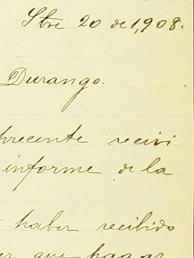 Sbre 20 de 1,908.
Durango.
precente recivi
informe de la
haber recibido
que pagar